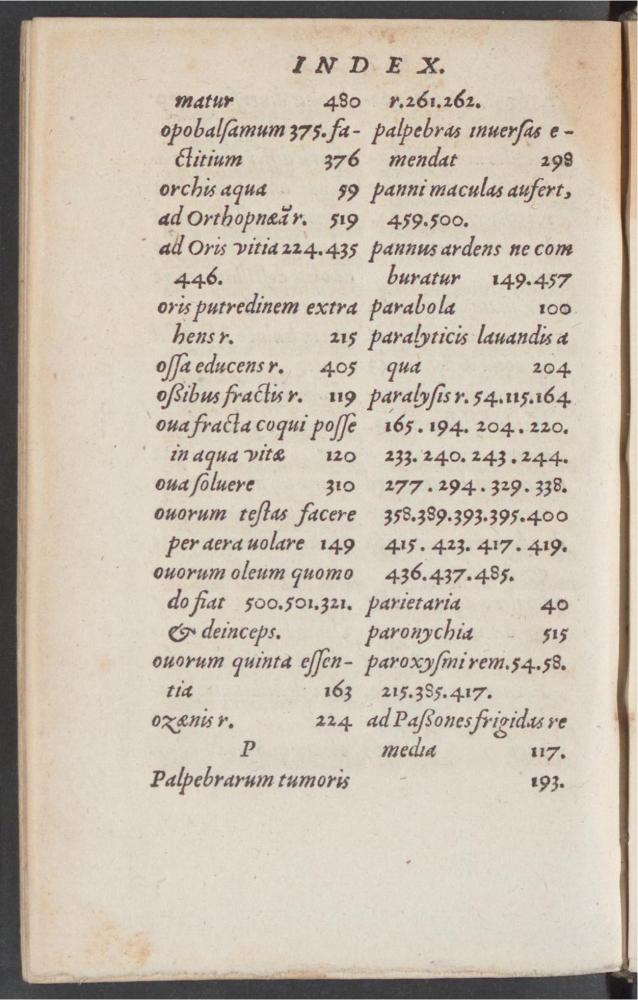 INDEX.
matur 480
opobalſamum 375. fa-
ctitium 376
orchis aqua 59
ad Orthopnæã r. 519
ad Oris vitia 224.435
446.
oris putredinem extra
hens r. 215
oſſa educens r. 405
oßibus fractis r. 119
oua fracta coqui poſſe
in aqua vitæ 120
oua ſoluere 310
ouorum teſtas facere
per aera uolare 149
ouorum oleum quomo
do fiat 500.501.321.
& deinceps.
ouorum quinta eſſen-
tia 163
ozænis r. 224
P
Palpebrarum tumoris
r.261.262.
palpebras inuerſas e-
mendat 298
panni maculas aufert,
459.500.
pannus ardens ne com
buratur 149.457
parabola 100
paralyticis lauandis a
qua 204
paralyſis r. 54.115.164
165. 194. 204. 220.
233. 240. 243. 244.
277. 294. 329. 338.
358.389.393.395.400
415. 423. 417. 419.
436.437.485.
parietaria 40
paronychia 515
paroxyſmi rem. 54.58.
215.385.417.
ad Paßones frigidas re
media 117.
193.